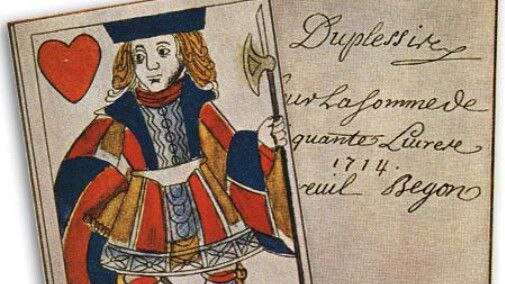 Duplessis
our la somme de
quante Livres
1714.
reuil Begon